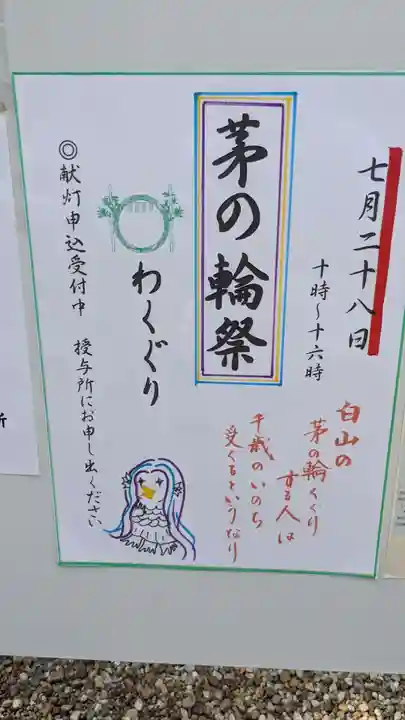 七月二十八日
十時～十六時
茅の輪祭
わくぐり
白山の
茅の輪くぐり
する人は
千歳のいのち
受くるというなり
◎献灯申込受付中
授与所にお申し出ください
所